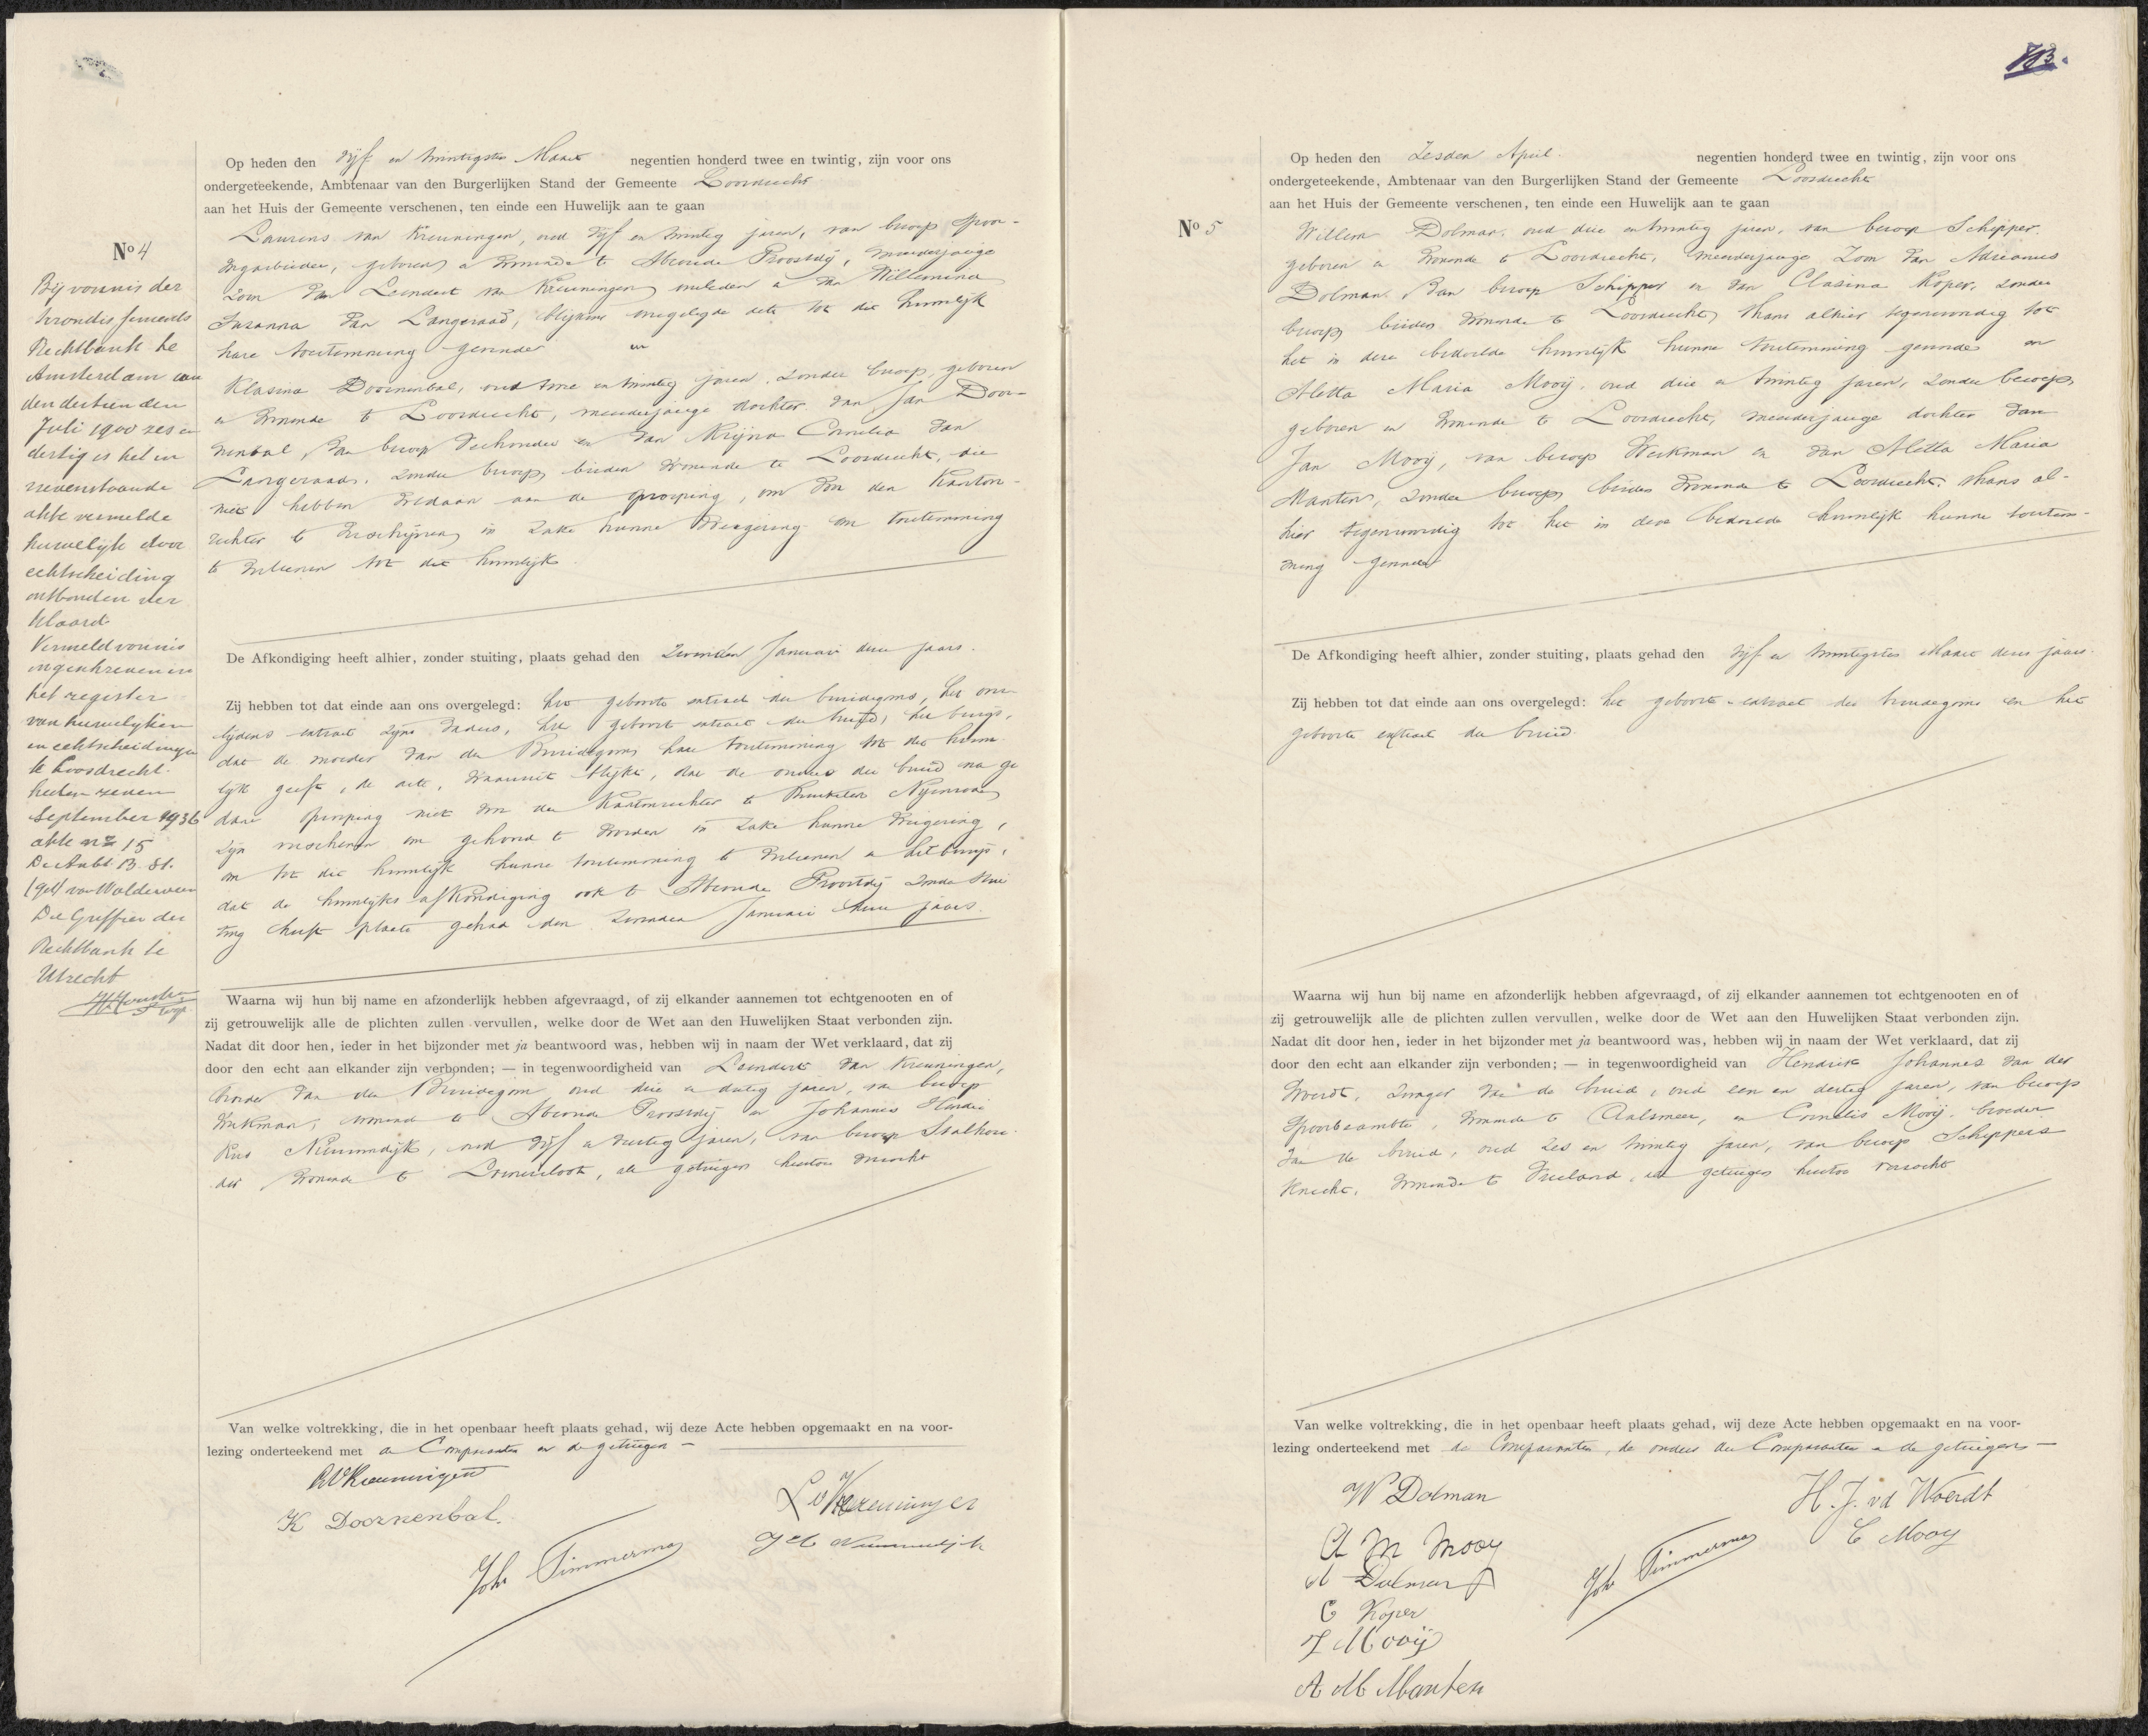 Op heden den vijf en twintigsten Maart negentien honderd twee en twintig, zijn voor ons
ondergeteekende, Ambtenaar van den Burgerlijken Stand der Gemeente Loosdrecht
aan het Huis der Gemeente verschenen, ten einde een Huwelijk aan te gaan
Nº 4
Laurens van Kreuningen, oud vijf en twintig jaren, van beroep spoor-
wegarbeider, geboren en wonende te Abcoude Proostdij, meerderjarige
zoon van Leendert van Kreuningen overleden en van Willemina
Susanna van Langeraad, blijkens overgelegde acte tot dit huwelijk
hare toestemming gevende en
Klasina Doornenbal, oud twee en twintig jaren, zonder beroep, geboren
en wonende te Loosdrecht, meerderjarige dochter van Jan Door-
nenbal, van beroep veehouder en van Krijna Cornelia van
Langeraad, zonder beroep, beiden wonende te Loosdrecht, die
niet hebben voldaan aan de oproeping, om voor den Kanton-
rechter te verschijnen in zake hunne weigering om toestemming
te verleenen tot dit huwelijk.
De Afkondiging heeft alhier, zonder stuiting, plaats gehad den zevenden Januari dezes jaars.
Zij hebben tot dat einde aan ons overgelegd: het geboorte extract des bruidegoms, het over-
lijdens extract zijns vaders, het geboorte extract der bruid, het bewijs,
dat de moeder van den Bruidegom hare toestemming tot dit huwe-
lijk geeft, de acte, waaruit blijkt, dat de ouders der bruid na ge
dane oproeping niet voor den Kantonrechter te Breukelen Nijenrode
zijn verschenen om gehoord te worden in zake hunne weigering,
om tot dit huwelijk hunne toestemming te verleenen en het bewijs,
dat de huwelijks afkondiging ook te Abcoude Proostdij zonder stui
ting heeft plaats gehad den zevenden Januari dezes jaars.
Waarna wij hun bij name en afzonderlijk hebben afgevraagd, of zij elkander aannemen tot echtgenooten en of
zij getrouwelijk alle de plichten zullen vervullen, welke door de Wet aan den Huwelijken Staat verbonden zijn.
Nadat dit door hen, ieder in het bijzonder met ja beantwoord was, hebben wij in naam der Wet verklaard, dat zij
door den echt aan elkander zijn verbonden; — in tegenwoordigheid van Leendert van Kreuningen,
broeder van den Bruidegom oud drie en dertig jaren, van beroep
Werkman, wonende te Abcoude Proostdij en Johannes Hendri
kus, oud vijf en veertig jaren, van beroep Stalhou-
der wonende te Loenersloot, als getuigen hiertoe verzocht
Van welke voltrekking, die in het openbaar heeft plaats gehad, wij deze Acte hebben opgemaakt en na voor-
lezing onderteekend met de Comparanten en de getuigen —
K Doornenbal.
L v Kreuningen
Joh Timmerman
Bij vonnis der
Arrondissements
Rechtbank te
Amsterdam van
den dertienden
Juli 1900 zes en
dertig is het in
nevenstaande
akte vermelde
huwelijk door
echtscheiding
ontbonden ver
klaard.
Vermeld vonnis
ingeschreven in
het register
van huwelijken
en echtscheidingen
te Loosdrecht.
heden zeven
September 1936
akte nº 15
De Ambt. B. St.
(get)
De Griffier der
Rechtbank te
Utrecht
Op heden den zesden April. negentien honderd twee en twintig, zijn voor ons
ondergeteekende, Ambtenaar van den Burgerlijken Stand der Gemeente Loosdrecht
aan het Huis der Gemeente verschenen, ten einde een Huwelijk aan te gaan
Nº 5
Willem Dolman, oud drie en twintig jaren, van beroep Schipper.
geboren en wonende te Loosdrecht, meerderjarige zoon van Adrianus
Dolman, van beroep Schipper en van Clasina Koper, zonder
beroep, beiden wonende te Loosdrecht, thans alhier tegenwoordig tot
het in deze bedoelde huwelijk hunne toestemming gevende en
Aletta Maria Mooij, oud drie en twintig jaren, zonder beroep,
geboren en wonende te Loosdrecht, meerderjarige dochter van
Jan Mooij, van beroep Werkman en van Aletta Maria
Manten, zonder beroep, beiden wonende te Loosdrecht, thans al-
hier tegenwoordig tot het in deze bedoelde huwelijk hunne toestem-
ming gevende
De Afkondiging heeft alhier, zonder stuiting, plaats gehad den vijf en twintigsten Maart dezes jaars.
Zij hebben tot dat einde aan ons overgelegd: het geboorte-extract des bruidegoms en het
geboorte extract der bruid.
Waarna wij hun bij name en afzonderlijk hebben afgevraagd, of zij elkander aannemen tot echtgenooten en of
zij getrouwelijk alle de plichten zullen vervullen, welke door de Wet aan den Huwelijken Staat verbonden zijn.
Nadat dit door hen, ieder in het bijzonder met ja beantwoord was, hebben wij in naam der Wet verklaard, dat zij
door den echt aan elkander zijn verbonden; — in tegenwoordigheid van Hendrik Johannes van der
Woerdt, zwager van de bruid, oud een en dertig jaren, van beroep
spoorbeambte, wonende te Aalsmeer, en Cornelis Mooij, broeder
van de bruid, oud zes en twintig jaren, van beroep Schippers
knecht, wonende te Vreeland, als getuigen hiertoe verzocht
Van welke voltrekking, die in het openbaar heeft plaats gehad, wij deze Acte hebben opgemaakt en na voor-
lezing onderteekend met de Comparanten, de ouders der Comparanten en de getuigen —
W Dolman
H. J. vd Woerdt
A M Mooy
C Mooy
A Dolman
Joh Timmerman
C Koper
J Mooij
A M Manten